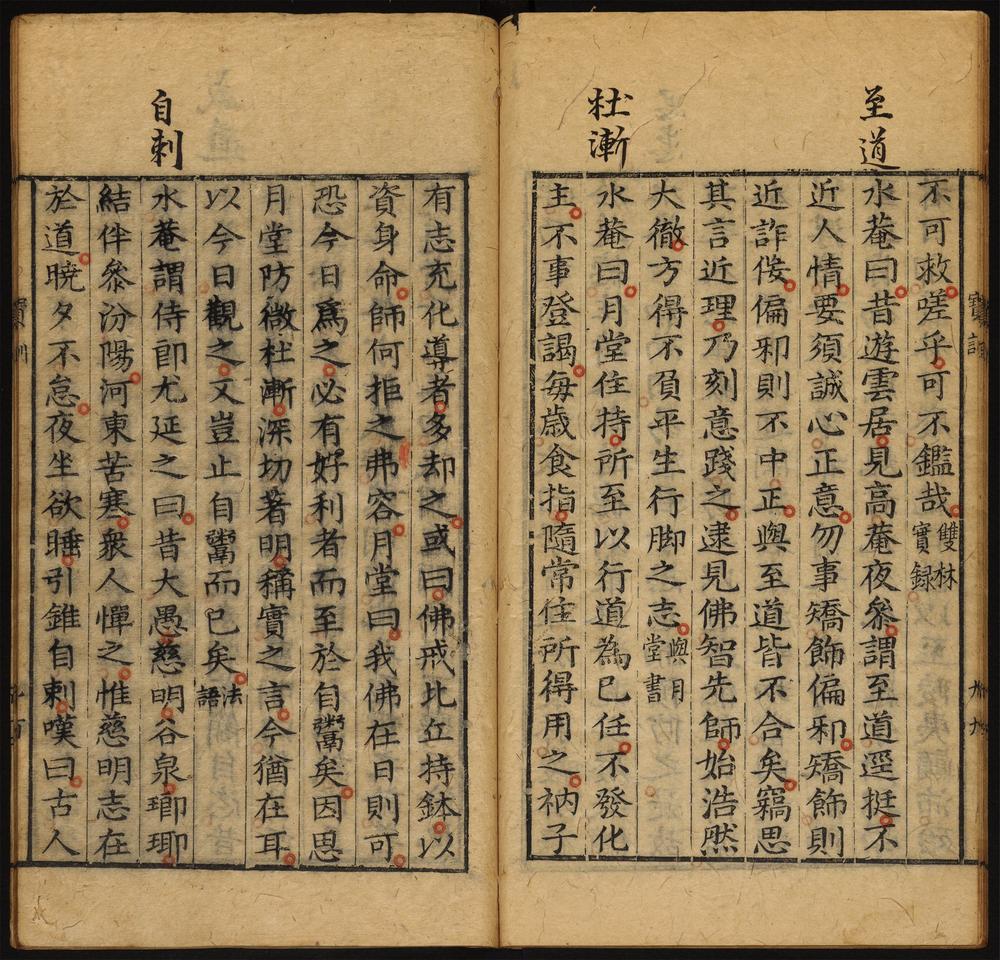 至道
杜漸
不可救嗟乎可不鑑哉雙林實録
水菴曰昔遊雲居見高菴夜叅謂至道逕挺不
近人情要須誠心正意勿事矯飾偏邪矯飾則
近詐佞偏邪則不中正與至道皆不合矣竊思
其言近理乃刻意踐之逮見佛智先師始浩然
大徹方得不負平生行脚之志與月堂書
水菴曰月堂住持所至以行道為己任不發化
主不事登謁每歳食指隨常住所得用之衲子
寶訓
自刺
有志充化導者多却之或曰佛戒比丘持鉢以
資身命師何拒之弗容月堂曰我佛在日則可
恐今日爲之必有好利者而至於自鬻矣因思
月堂防微杜漸深切著明稱實之言今猶在耳
以今日觀之又豈止自鬻而已矣法語
水菴謂侍郎尤延之曰昔大愚慈明谷泉瑯琊
結伴叅汾陽河東苦寒衆人憚之惟慈明志在
於道曉夕不怠夜坐欲睡引錐自刺嘆曰古人